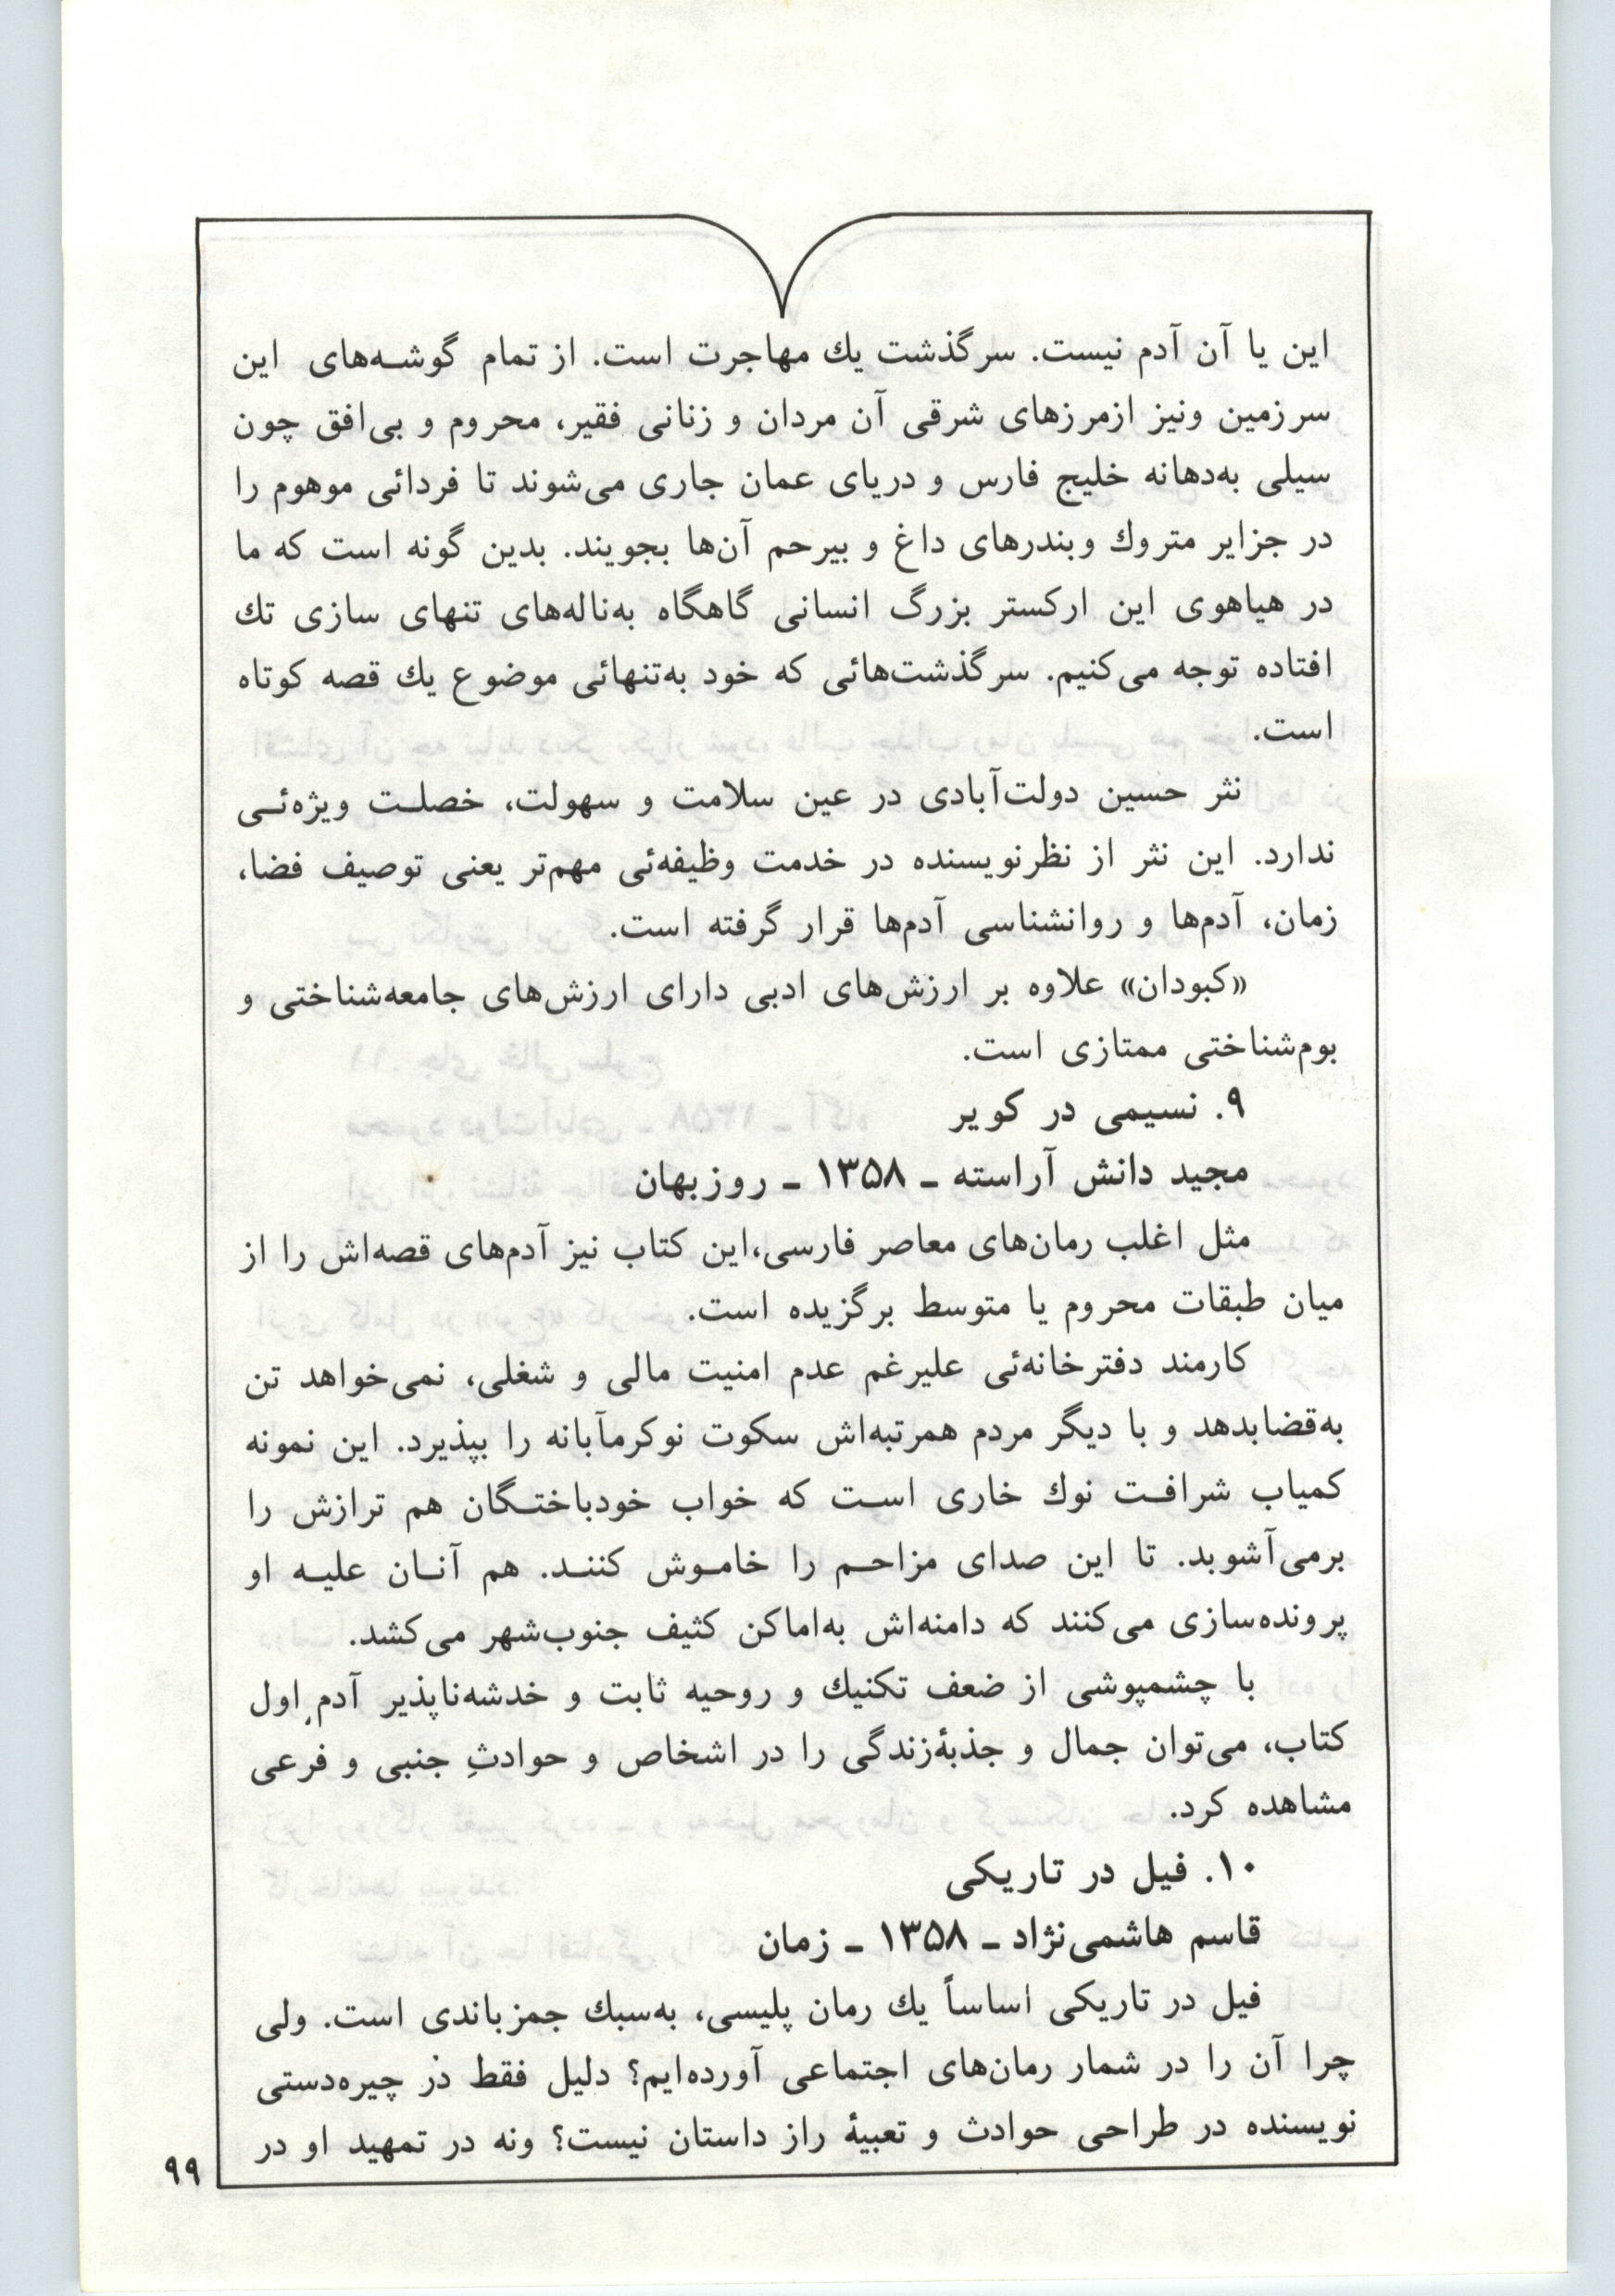 این یا آن آدم نیست. سرگذشت يك مهاجرت است. از تمام گوشه‌های این
سرزمین ونیز ازمرزهای شرقی آن مردان و زنانی فقیر، محروم و بی‌افق چون
سیلی به‌دهانه خلیج فارس و دریای عمان جاری می‌شوند تا فردائی موهوم را
در جزایر متروك وبندرهای داغ و بیرحم آن‌ها بجویند. بدین گونه است که ما
در هیاهوی این ارکستر بزرگ انسانی گاهگاه به‌ناله‌های تنهای سازی تك
افتاده توجه می‌کنیم. سرگذشت‌هائی که خود به‌تنهائی موضوع يك قصه کوتاه
است.
نثر حسین دولت‌آبادی در عین سلامت و سهولت، خصلت ویژه‌ئی
ندارد. این نثر از نظرنویسنده در خدمت وظیفه‌ئی مهم‌تر یعنی توصیف فضا،
زمان، آدم‌ها و روانشناسی آدم‌ها قرار گرفته است.
«کبودان» علاوه بر ارزش‌های ادبی دارای ارزش‌های جامعه‌شناختی و
بوم‌شناختی ممتازی است.
۹. نسیمی در کویر
مجید دانش آراسته ـ ۱۳۵۸ ـ روزبهان
مثل اغلب رمان‌های معاصر فارسی،این کتاب نیز آدم‌های قصه‌اش را از
میان طبقات محروم یا متوسط برگزیده است.
کارمند دفترخانه‌ئی علیرغم عدم امنیت مالی و شغلی، نمی‌خواهد تن
به‌قضابدهد و با دیگر مردم همرتبه‌اش سکوت نوکرمآبانه را بپذیرد. این نمونه
کمیاب شرافت نوك خاری است که خواب خودباختگان هم ترازش را
برمی‌آشوبد. تا این صدای مزاحم را خاموش کنند. هم آنان علیه او
پرونده‌سازی می‌کنند که دامنه‌اش به‌اماکن کثیف جنوب‌شهر می‌کشد.
با چشمپوشی از ضعف تکنیك و روحیه ثابت و خدشه‌ناپذیر آدمِ اول
کتاب، می‌توان جمال و جذبهٔ‌زندگی را در اشخاص و حوادثِ جنبی و فرعی
مشاهده کرد.
۱۰. فیل در تاریکی
قاسم هاشمی‌نژاد ـ ۱۳۵۸ ـ زمان
فیل در تاریکی اساساً يك رمان پلیسی، به‌سبك جمزباندی است. ولی
چرا آن را در شمار رمان‌های اجتماعی آورده‌ایم؟ دلیل فقط در چیره‌دستی
نویسنده در طراحی حوادث و تعبیهٔ راز داستان نیست؟ ونه در تمهید او در
۹۹